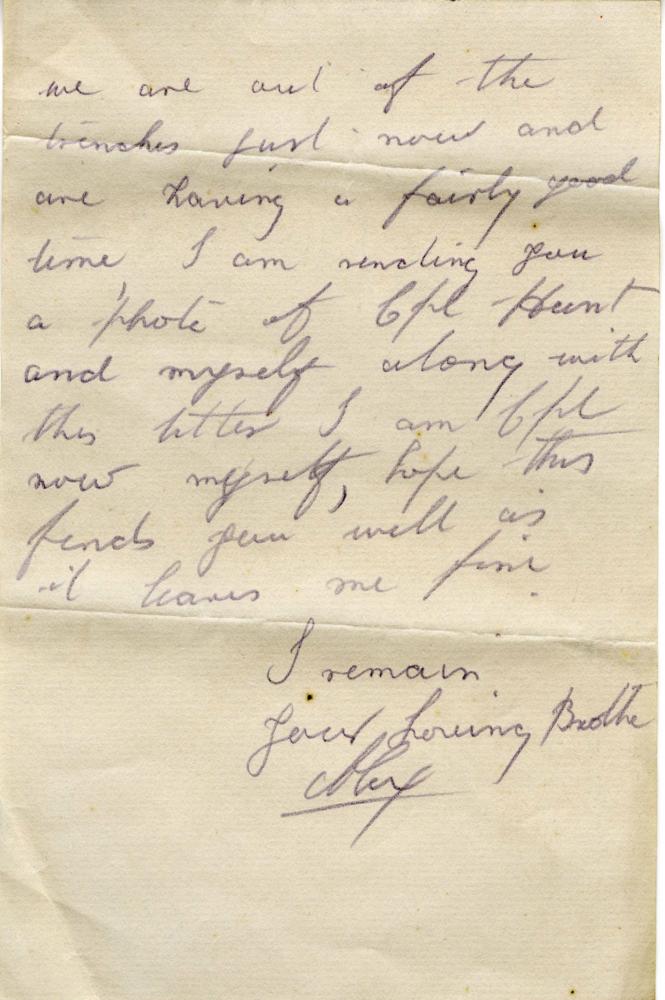 we are out of the
trenches just now and
are having a fairly good
time I am sending you
a photo of Cpl Hunt
and myself along with
this letter I am Cpl
now myself, hope this
finds you well as
it leaves me fine.
I remain
your loving Brothe
Alex